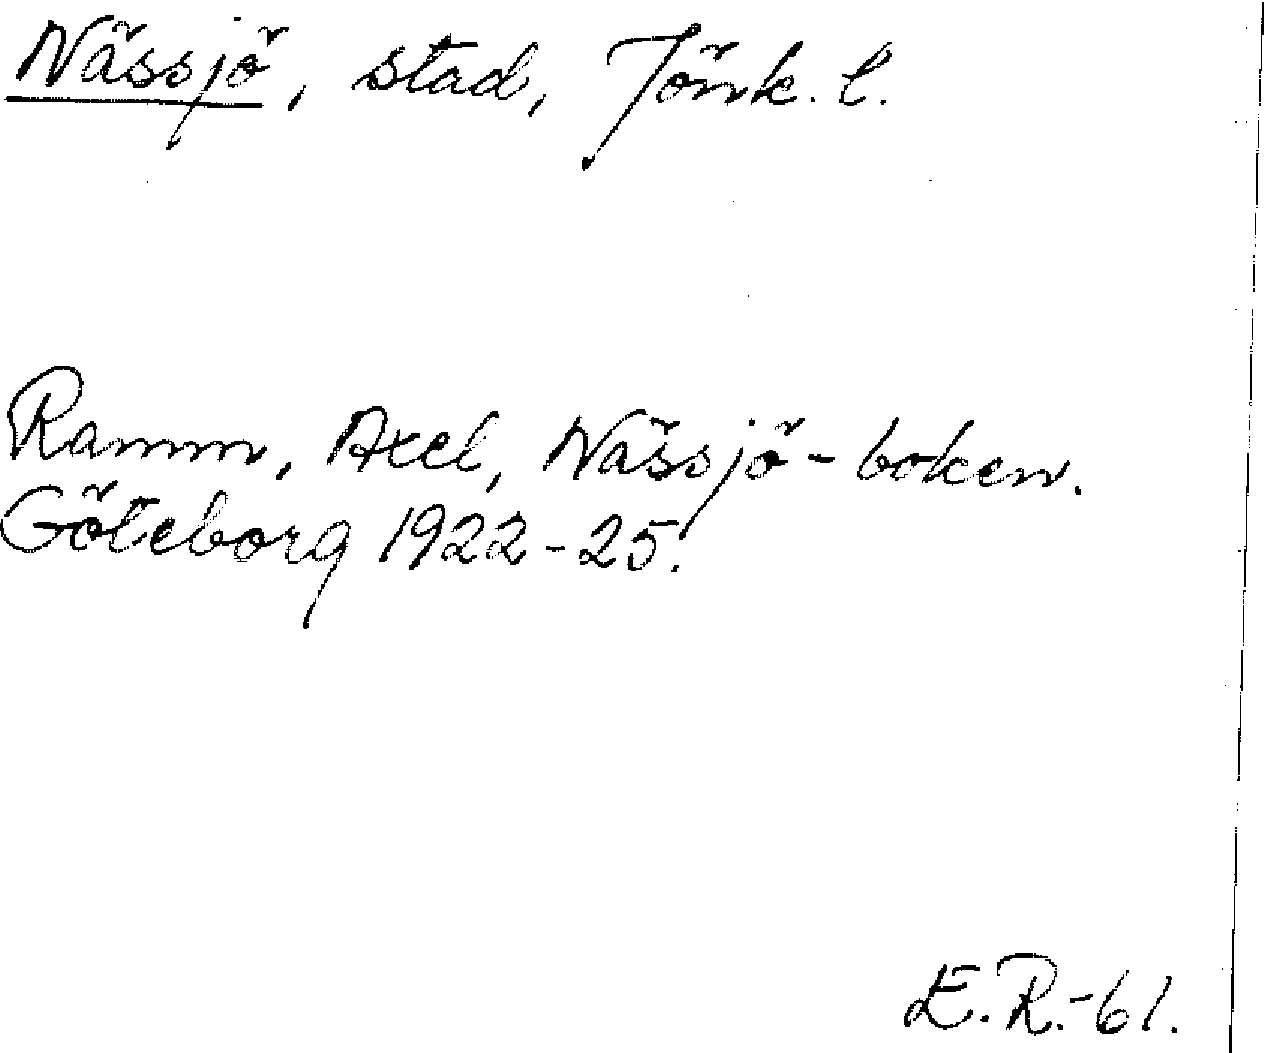 Nässjö, stad, Jönk. l.
Ramm, Axel, Nässjö-boken.
Göteborg 1922-25.
E.R.-61.